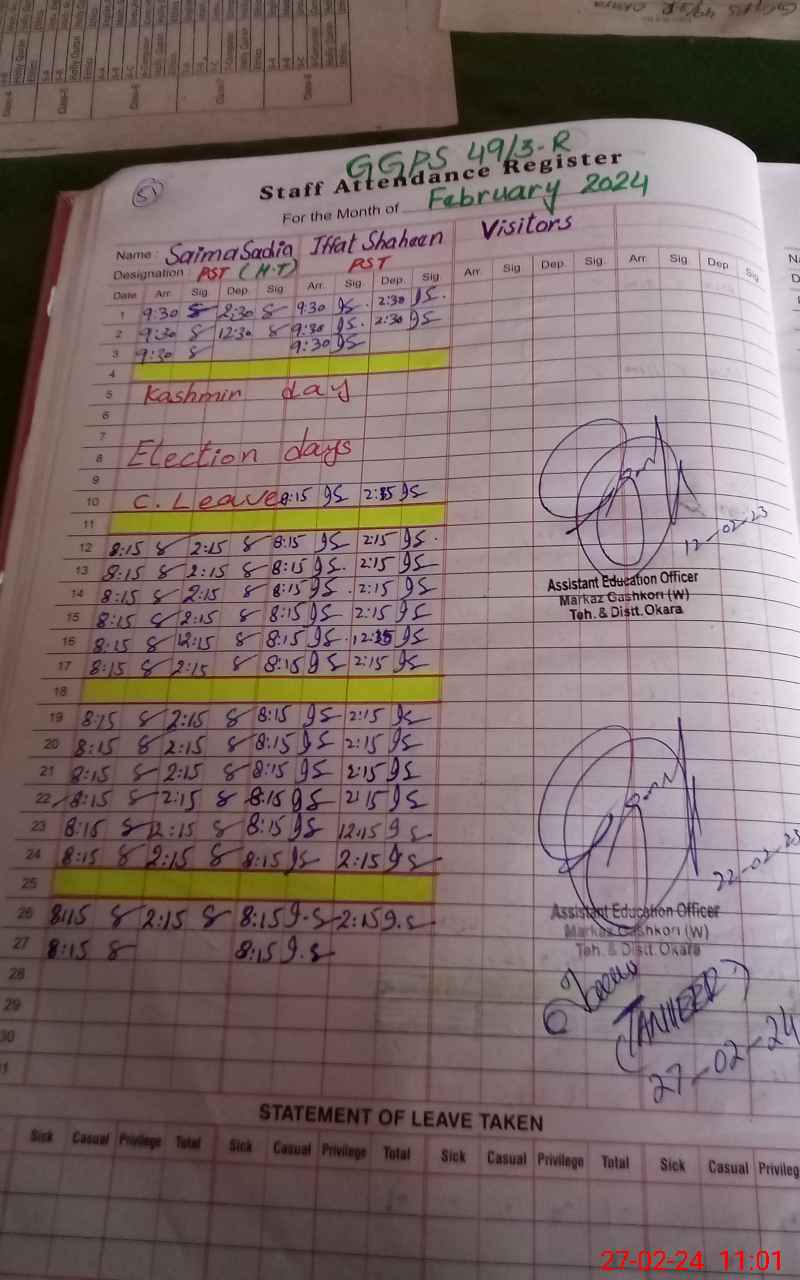 GGPS 49/3-R
51
Staff Attendance Register
For the Month of February 2024
Name : Saima Sadia Iffat Shaheen Visitors
Designation : PST (H.T) PST
Date Arr. Sig. Dep. Sig Arr. Sig. Dep. Sig. Arr. Sig Dep. Sig. Arr. Sig. Dep Sig
1 9:30 S 2:30 S 9:30 IS. 2:30 IS.
2 9:30 S 12:30 S 9:30 IS. 2:30 IS
3 9:30 S 9:30 IS
4
5 Kashmir day
6
7
8 Election days
9
10 C. Leave 8:15 IS 2:15 IS
11
12 8:15 S 2:15 S 8:15 IS 2:15 IS.
13 8:15 S 2:15 S 8:15 IS. 2:15 IS
14 8:15 S 2:15 S 8:15 IS. 2:15 IS
15 8:15 S 2:15 S 8:15 IS 2:15 IS
16 8:15 S 12:15 S 8:15 IS. 12:15 IS
17 8:15 S 2:15 S 8:15 IS 2:15 IS
18
19 8:15 S 2:15 S 8:15 IS 2:15 IS
20 8:15 S 2:15 S 8:15 IS 2:15 IS
21 8:15 S 2:15 S 8:15 IS 2:15 IS
22 8:15 S 2:15 S 8:15 IS 2:15 IS
23 8:15 S 12:15 S 8:15 IS 12:15 IS
24 8:15 S 2:15 S 8:15 IS 2:15 IS
25
26 8:15 S 2:15 S 8:15 I.S 2:15 I.S
27 8:15 S 8:15 I.S
28
29
30
12-02-23
Assistant Education Officer
Markaz Gashkori (W)
Teh. & Distt. Okara
22-02-23
Assistant Education Officer
Markaz Gashkori (W)
Teh. & Distt. Okara
(TANVEER)
27-02-24
STATEMENT OF LEAVE TAKEN
Sick Casual Privilege Total Sick Casual Privilege Total Sick Casual Privilege Total Sick Casual Privileg
27-02-24 11:01